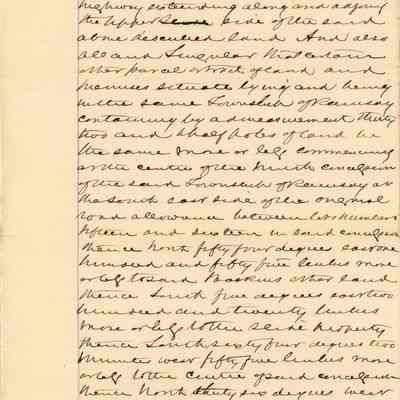 highway extending along and adjoing
the upper side of the said
above described land And also
all and Singular that certain
other parcel or tract of land and
premises situate lying and being
in the same Township of Ramsay
containing by admeasurement thirty
two and ½ half poles of land be
the same more or less commencing
at the centre of the ninth concession
of the said Township of Ramsay at
the South east side of the original
road allowance between lots numbers
fifteen and sixteen in said concession
thence North fifty four degrees east one
hundred and fifty five links more
or less to said other land
thence South five degrees east two
hundred and twenty links
more or less to the property
thence South sixty four degrees two
minutes west fifty five links more
or less to the centre of said concession
thence North thirty six degrees west